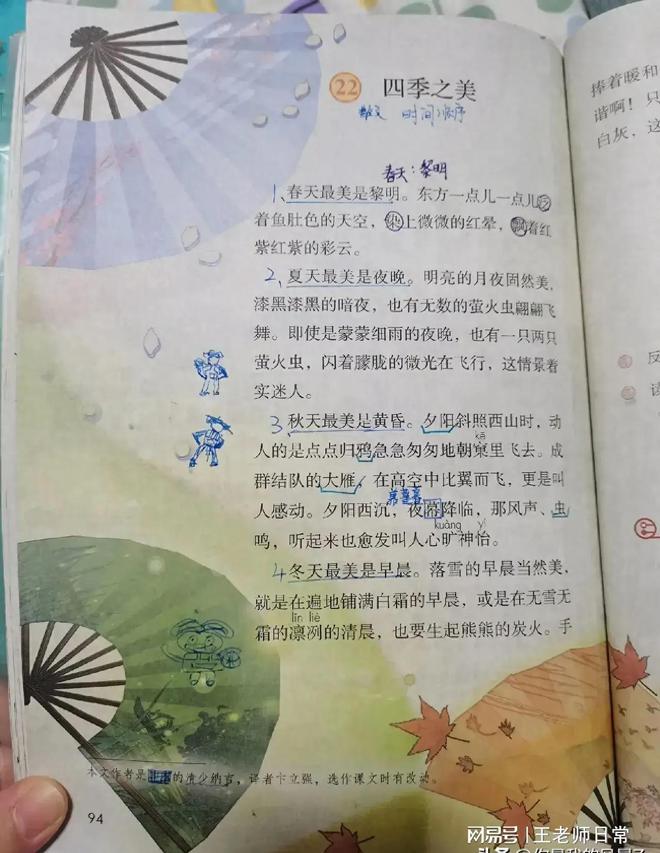 22 四季之美
散文 时间顺序
春天:黎明
1、春天最美是黎明。东方一点儿一点儿泛
着鱼肚色的天空，染上微微的红晕，飘着红
紫红紫的彩云。
2、夏天最美是夜晚。明亮的月夜固然美，
漆黑漆黑的暗夜，也有无数的萤火虫翩翩飞
舞。即使是蒙蒙细雨的夜晚，也有一只两只
萤火虫，闪着朦胧的微光在飞行，这情景着
实迷人。
3 秋天最美是黄昏。夕阳斜照西山时，动
人的是点点归鸦急急匆匆地朝窠里飞去。成
kē
群结队的大雁，在高空中比翼而飞，更是叫
人感动。夕阳西沉，夜幕降临，那风声、虫
kuàng yí
鸣，听起来也愈发叫人心旷神怡。
4 冬天最美是早晨。落雪的早晨当然美，
就是在遍地铺满白霜的早晨，或是在无雪无
lǐn liè
霜的凛冽的清晨，也要生起熊熊的炭火。手
本文作者是日本的清少纳言，译者卞立强，选作课文时有改动。
94
捧着暖和
谐啊！只
白灰，这
反
读
网易号|王老师日常